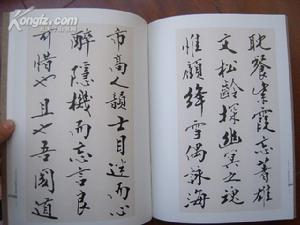 Kongfz.com
耽餐紫霞忘著雄
文松齡探幽冥之魂
惟顧絳雪偶詠海
市高人韻士目迷而心
醉隱機而忘言良
可惜也且也吾聞道